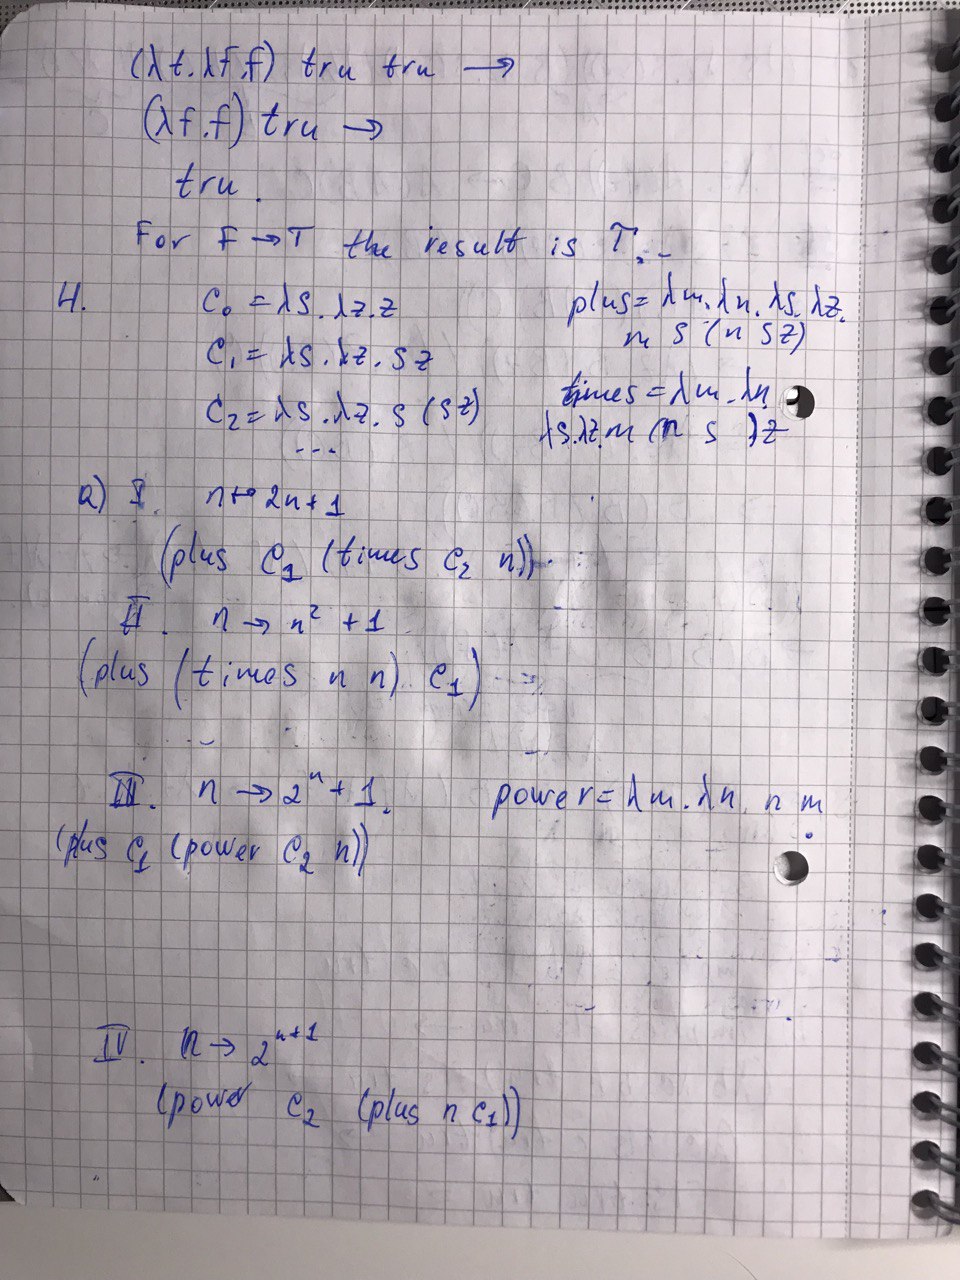 (λt.λf.f) tru tru →
(λf.f) tru →
tru.
For F → T the result is T.
4.
C₀ = λs.λz.z
C₁ = λs.λz.s z
C₂ = λs.λz.s (s z)
...
plus = λm.λn.λs.λz.
m s (n s z)
times = λm.λn
λs.λz.m (n s) z
a) I. n ↦ 2n+1
(plus C₁ (times C₂ n))
II. n → n² + 1
(plus (times n n) C₁)
III. n → 2ⁿ + 1. power = λm.λn. n m
(plus C₁ (power C₂ n))
IV. n → 2ⁿ⁺¹
(power C₂ (plus n C₁))